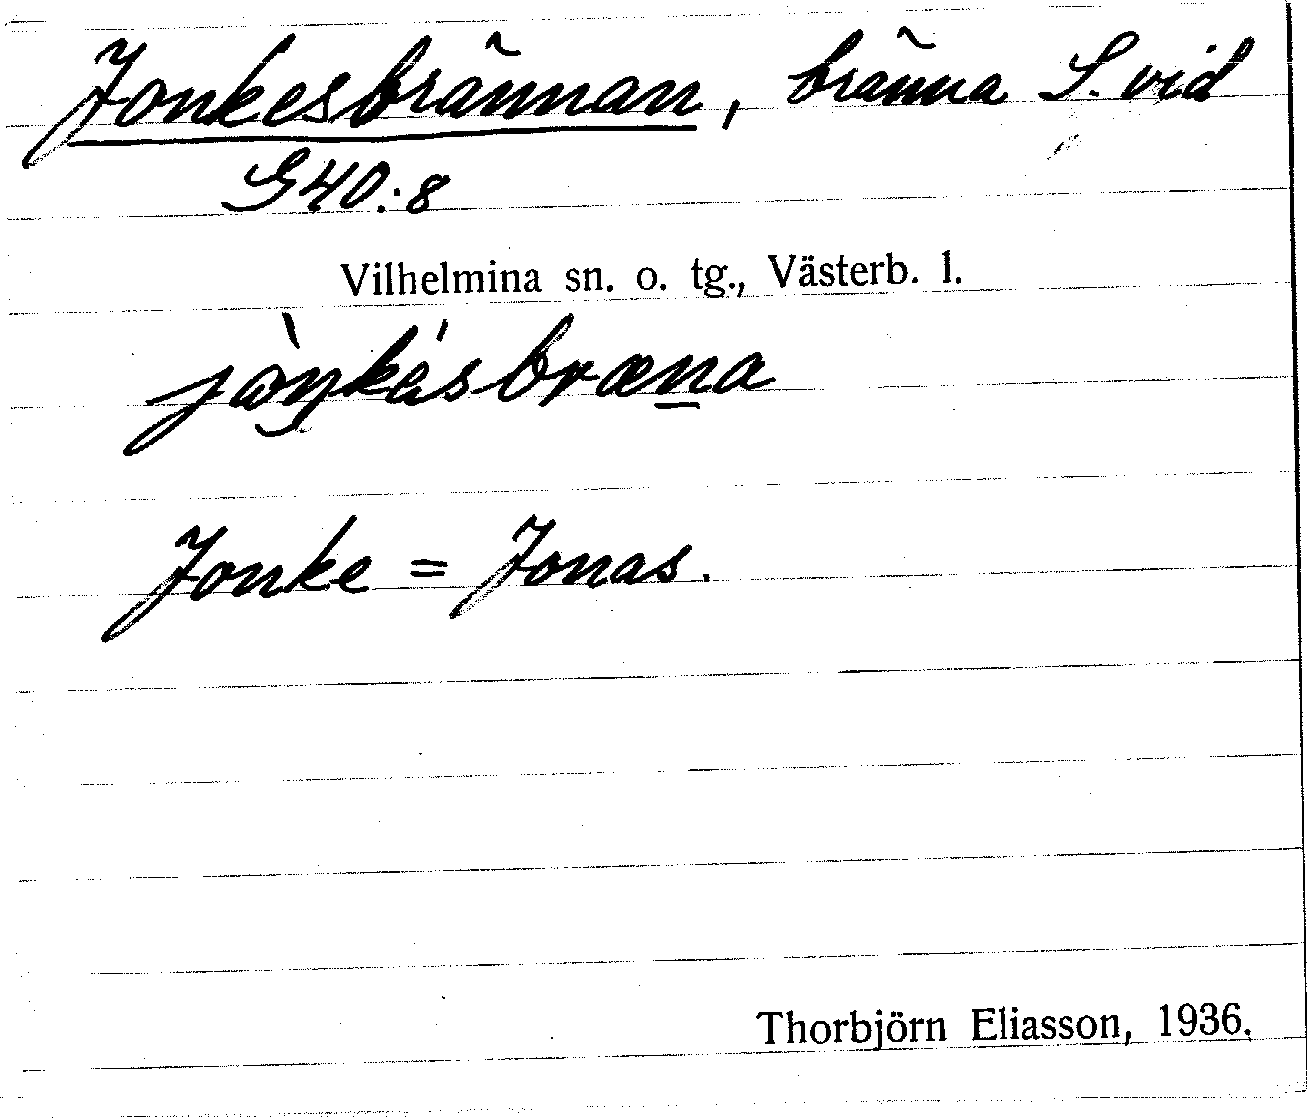 Jonkesbrännan, bränna S. vid
G40:8
Vilhelmina sn. o. tg., Västerb. l.
jòŋkásbræn̲a
Jonke = Jonas.
Thorbjörn Eliasson, 1936.